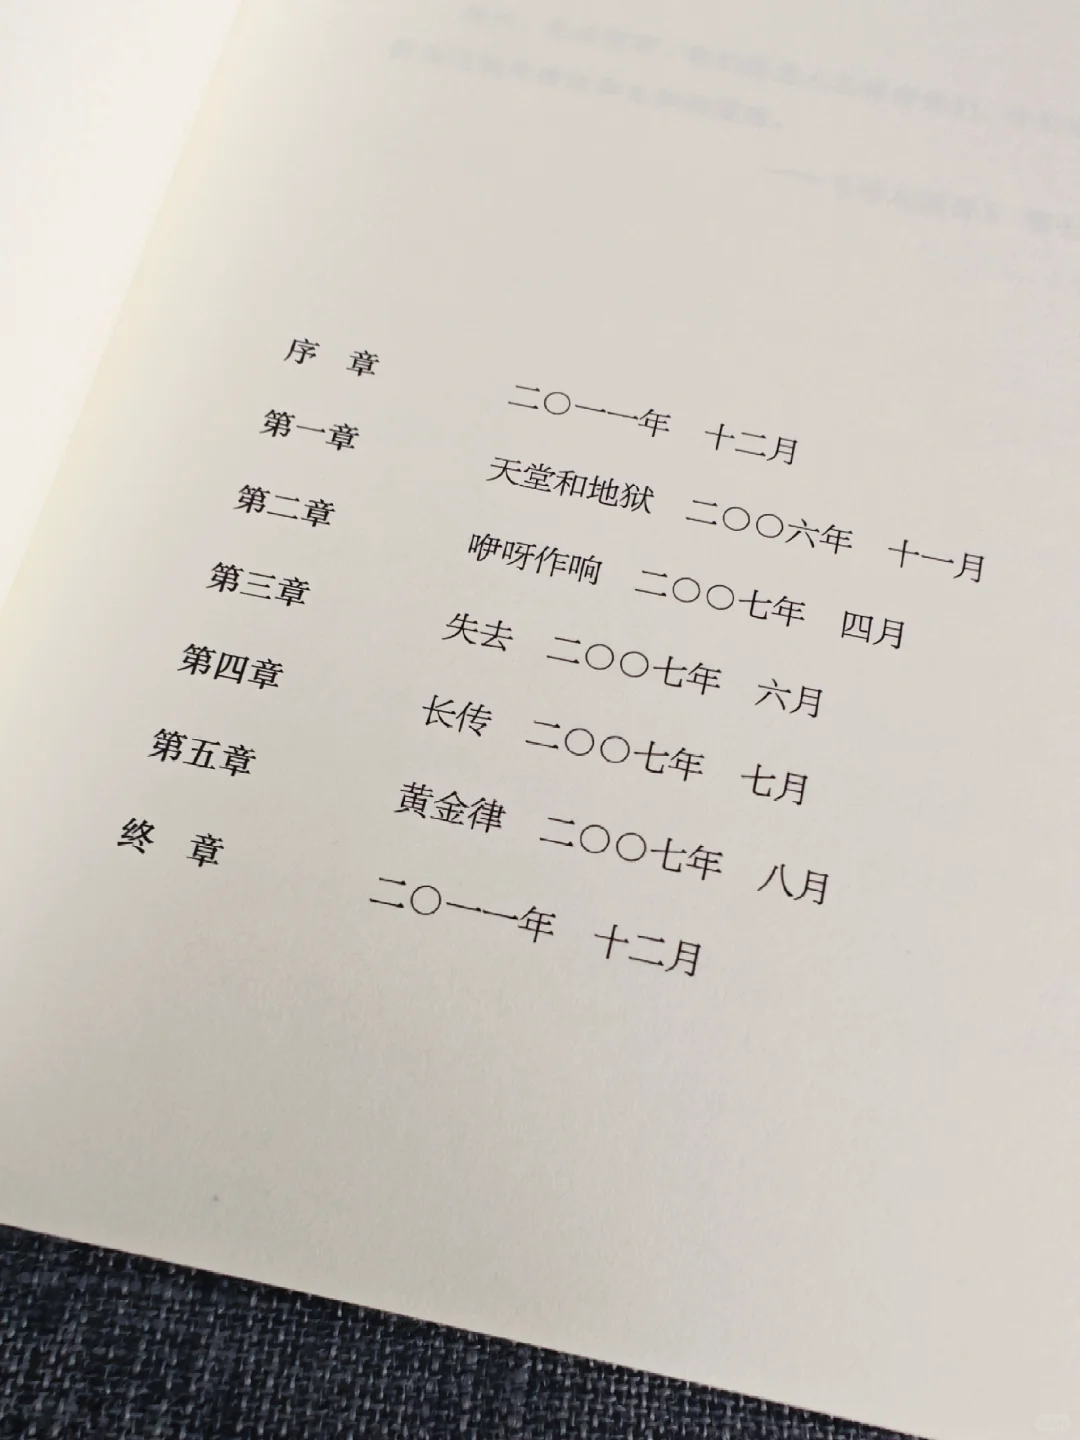 序　章　二〇一一年　十二月
第一章　天堂和地狱　二〇〇六年　十一月
第二章　咿呀作响　二〇〇七年　四月
第三章　失去　二〇〇七年　六月
第四章　长传　二〇〇七年　七月
第五章　黄金律　二〇〇七年　八月
终　章　二〇一一年　十二月